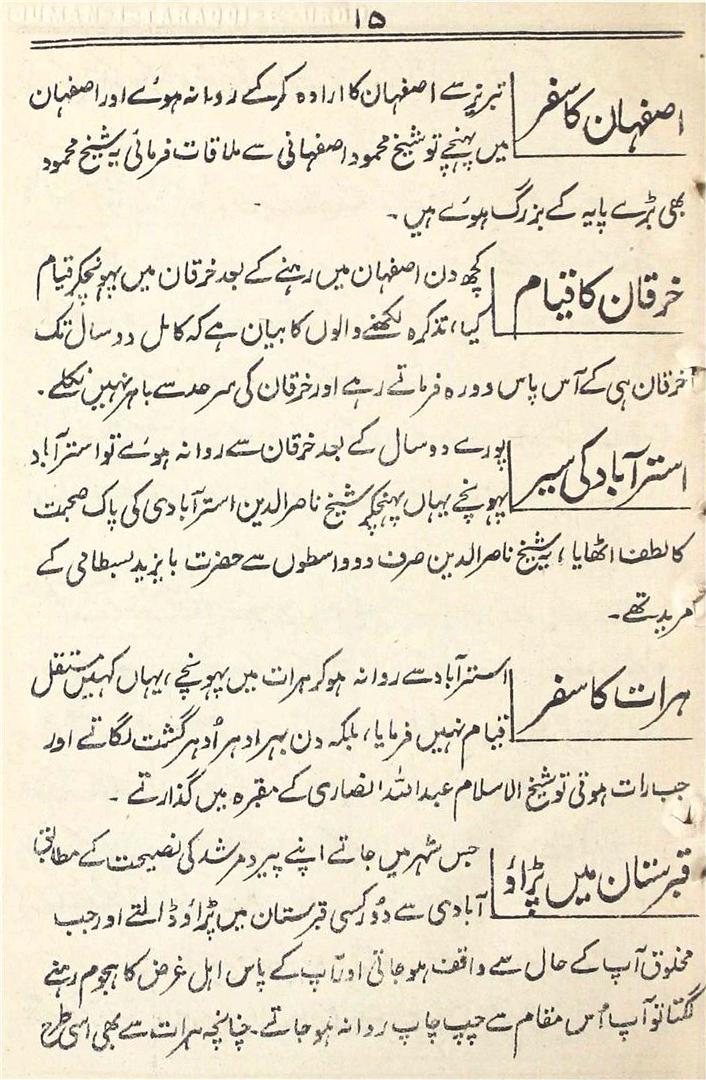 ۱۵
اصفہان کا سفر
تبریز سے اصفہان کا ارادہ کر کے روانہ ہوئے اور اصفہان
میں پہنچے تو شیخ محمود اصفہانی سے ملاقات فرمائی یہ شیخ محمود
بھی بڑے پایہ کے بزرگ ہوئے ہیں۔
خرقان کا قیام
کچھ دن اصفہان میں رہنے کے بعد خرقان میں پہونچکر قیام
کیا، تذکرہ لکھنے والوں کا بیان ہے کہ کامل دو سال تک
خرقان ہی کے آس پاس دورہ فرماتے رہے اور خرقان کی سرحد سے باہر نہیں نکلے۔
استرآباد کی سیر
پورے دو سال کے بعد خرقان سے روانہ ہوئے تو استرآباد
پہونچے یہاں پہنچکر شیخ ناصرالدین استرآبادی کی پاک صحبت
کا لطف اٹھایا، یہ شیخ ناصرالدین صرف دو واسطوں سے حضرت بایزید بسطامی کے
مرید تھے۔
ہرات کا سفر
استرآباد سے روانہ ہوکر ہرات میں پہونچے، یہاں کہیں مستقل
قیام نہیں فرمایا، بلکہ دن بہر ادہر اُدہر گشت لگاتے اور
جب رات ہوتی تو شیخ الاسلام عبداللہ انصاری کے مقبرہ میں گذارتے۔
قبرستان میں پڑاؤ
جس شہر میں جاتے اپنے پیر و مرشد کی نصیحت کے مطابق
آبادی سے دُور کسی قبرستان میں پڑاؤ ڈالتے اور جب
مخلوق آپ کے حال سے واقف ہو جاتی اور آپ کے پاس اہل غرض کا ہجوم رہنے
لگتا تو آپ اُس مقام سے چپ چاپ روانہ ہو جاتے۔ چنانچہ ہرات سے بھی اسی طرح